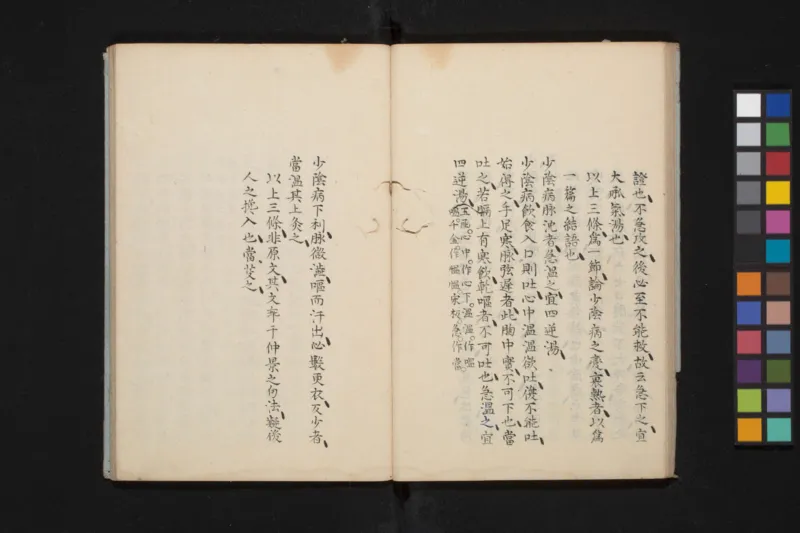 證也不急攻之後必至不能救故云急下之宜
大承氣湯也
以上三條爲一節論少陰病之處裏熱者以爲
一篇之結語也
少陰病脉沈者急溫之宜四逆湯
少陰病飲食入口則吐心中溫溫欲吐復不能吐
始得之手足寒脉弦遲者此胸中實不可下也當
吐之若膈上有寒飲乾嘔者不可吐也急溫之宜
四逆湯
少陰病下利脉微濇嘔而汗出必數更衣反少者
當溫其上灸之
以上三條非原文其文率于仲景之句法疑後
人之攙入也當芟之